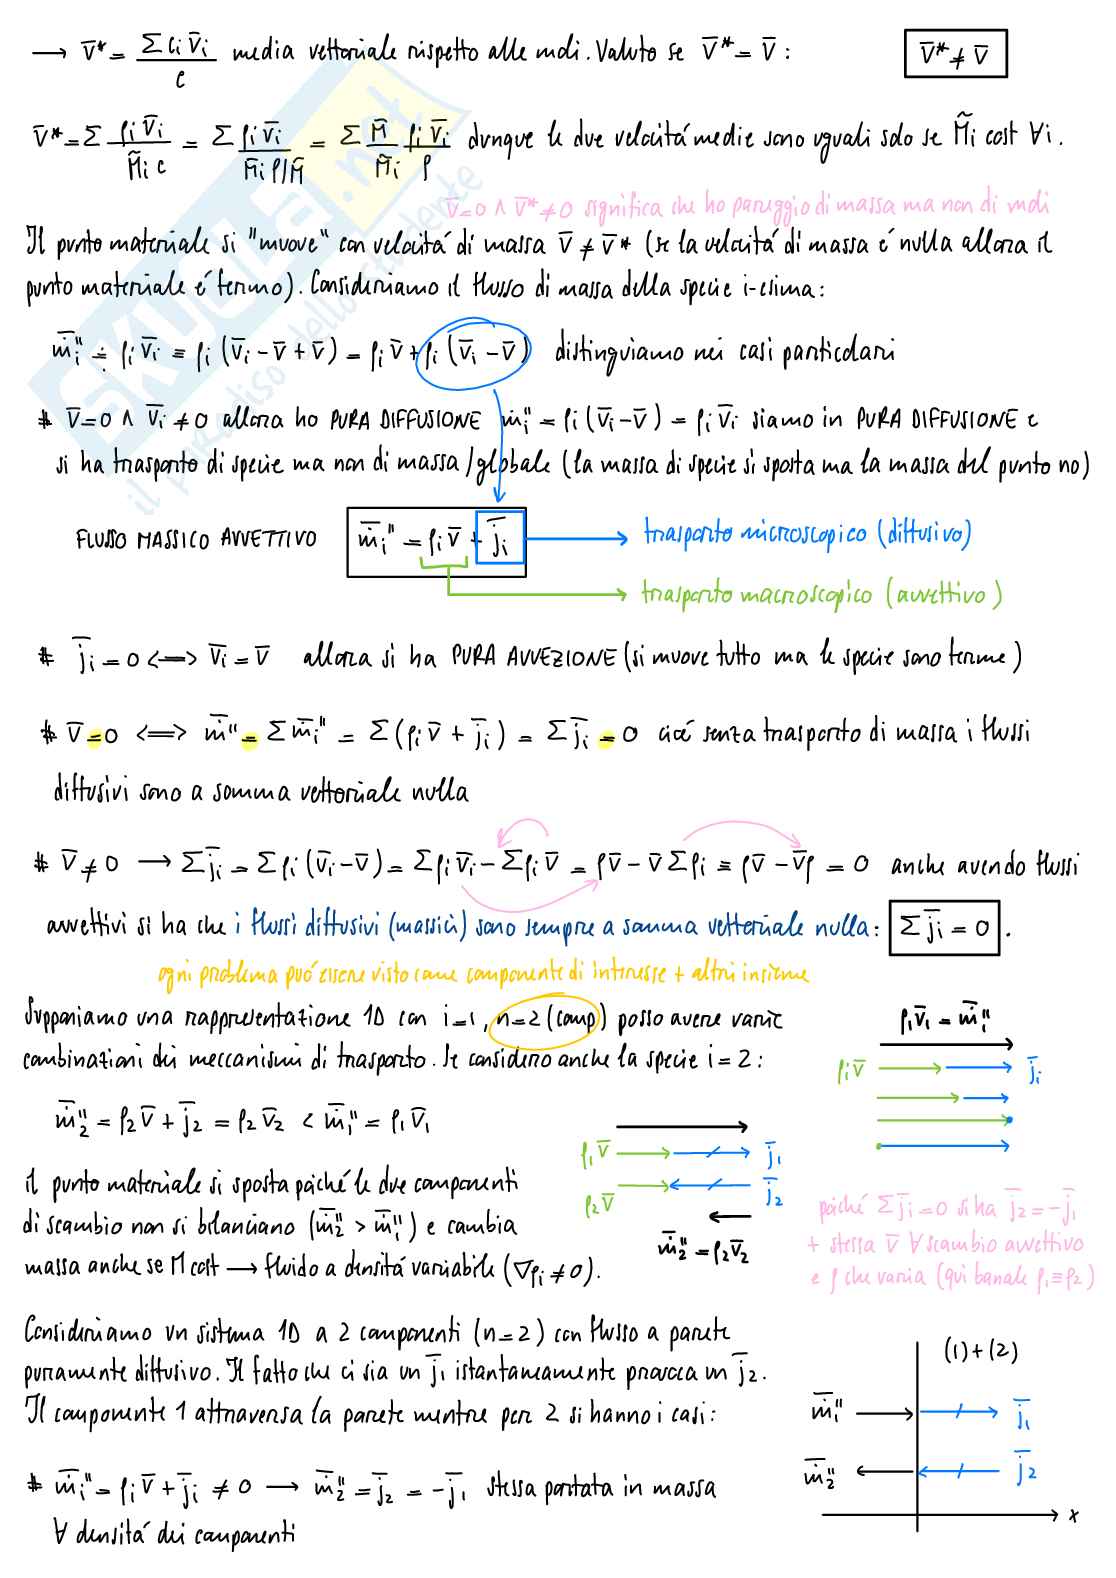 → v̄* = Σ cᵢ v̄ᵢ / c media vettoriale rispetto alle moli. Valuto se v̄* = v̄ : v̄* ≠ v̄
v̄* = Σ ρᵢ v̄ᵢ / M̃ᵢ c = Σ ρᵢ v̄ᵢ / M̃ᵢ ρ/M̃ = Σ M̃/M̃ᵢ ρᵢ v̄ᵢ/ρ dunque le due velocitá medie sono uguali solo se M̃ᵢ cost ∀i.
v̄=0 ∧ v̄*≠0 significa che ho pareggio di massa ma non di moli
Il punto materiale si "muove" con velocitá di massa v̄ ≠ v̄* (se la velocitá di massa é nulla allora il
punto materiale é fermo). Consideriamo il flusso di massa della specie i-esima:
ṁ̄ᵢ" ≐ ρᵢ v̄ᵢ ≡ ρᵢ (v̄ᵢ - v̄ + v̄) = ρᵢ v̄ + ρᵢ (v̄ᵢ - v̄) distinguiamo nei casi particolari
# v̄=0 ∧ v̄ᵢ ≠ 0 allora ho PURA DIFFUSIONE ṁᵢ" = ρᵢ (v̄ᵢ - v̄) = ρᵢ v̄ᵢ siamo in PURA DIFFUSIONE e
si ha trasporto di specie ma non di massa/globale (la massa di specie si sposta ma la massa del punto no)
FLUSSO MASSICO AVVETTIVO ṁ̄ᵢ" = ρᵢ v̄ + j̄ᵢ → trasporto microscopico (diffusivo)
→ trasporto macroscopico (avvettivo)
# j̄ᵢ = 0 <=> v̄ᵢ = v̄ allora si ha PURA AVVEZIONE (si muove tutto ma le specie sono ferme)
# v̄ = 0 <=> ṁ̄" = Σ ṁ̄ᵢ" = Σ (ρᵢ v̄ + j̄ᵢ) = Σ j̄ᵢ = 0 cioé senza trasporto di massa i flussi
diffusivi sono a somma vettoriale nulla
# v̄ ≠ 0 → Σ j̄ᵢ = Σ ρᵢ (v̄ᵢ - v̄) = Σ ρᵢ v̄ᵢ - Σ ρᵢ v̄ = ρv̄ - v̄ Σ ρᵢ ≡ ρv̄ - v̄ρ = 0 anche avendo flussi
avvettivi si ha che i flussi diffusivi (massici) sono sempre a somma vettoriale nulla: Σ j̄ᵢ = 0 .
ogni problema puó essere visto come componente di interesse + altri insieme
Supponiamo una rappresentazione 1D con i=1, n=2 (comp) posso avere varie
combinazioni dei meccanismi di trasporto. Se considero anche la specie i=2:
ρ₁v̄₁ = ṁ̄₁"
ρᵢv̄ j̄ᵢ
ṁ̄₂" = ρ₂ v̄ + j̄₂ = ρ₂ v̄₂ < ṁ̄₁" = ρ₁ v̄₁
ρ₁v̄ j̄₁
ρ₂v̄ j̄₂
ṁ̄₂" = ρ₂v̄₂
il punto materiale si sposta poiché le due componenti
di scambio non si bilanciano (ṁ̄₂" > ṁ̄₁") e cambia
massa anche se M cost → fluido a densitá variabile (∇ρᵢ ≠ 0).
poiché Σ j̄ᵢ = 0 si ha j̄₂ = -j̄₁
+ stessa v̄ ∀ scambio avvettivo
e ρ che varia (qui banale ρ₁≡ρ₂)
Consideriamo un sistema 1D a 2 componenti (n=2) con flusso a parete
puramente diffusivo. Il fatto che ci sia un j̄₁ istantaneamente provoca un j̄₂.
Il componente 1 attraversa la parete mentre per 2 si hanno i casi:
(1)+(2)
ṁ̄₁" j̄₁
ṁ̄₂" j̄₂
x
# ṁ̄ᵢ" = ρᵢ v̄ + j̄ᵢ ≠ 0 → ṁ̄₂" = j̄₂ = -j̄₁ stessa portata in massa
∀ densitá dei componenti
SKUOLA.net
il paradiso dello studente